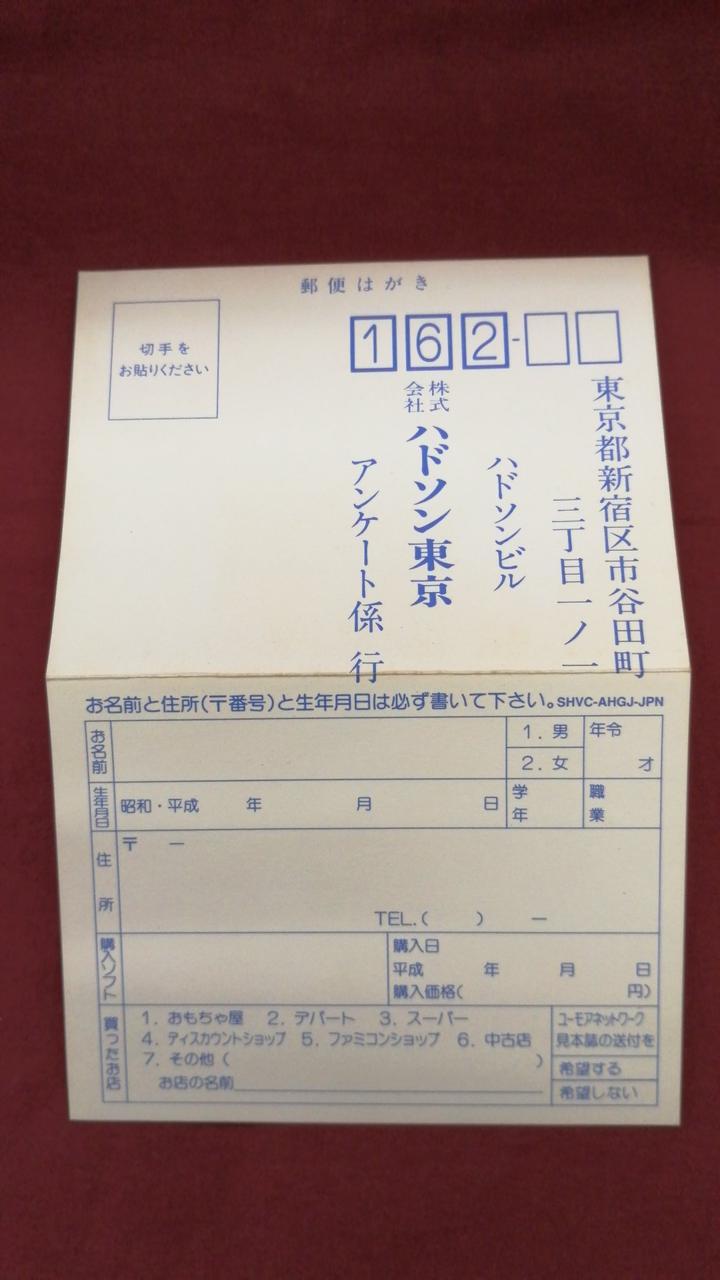 郵便はがき
切手を
お貼りください
162-
東京都新宿区市谷田町
三丁目一ノ一
ハドソンビル
株式
会社
ハドソン東京
アンケート係 行
お名前と住所(〒番号)と生年月日は必ず書いて下さい。SHVC-AHGJ-JPN
お名前
1. 男
2. 女
年令
才
生年月日
昭和・平成 年 月 日
学
年
職
業
住所
〒 ー
TEL.( ) ー
購入ソフト
購入日
平成 年 月 日
購入価格( 円)
買ったお店
1. おもちゃ屋 2. デパート 3. スーパー
4. ディスカウントショップ 5. ファミコンショップ 6. 中古店
7. その他( )
お店の名前
ユーモアネットワーク
見本誌の送付を
希望する
希望しない